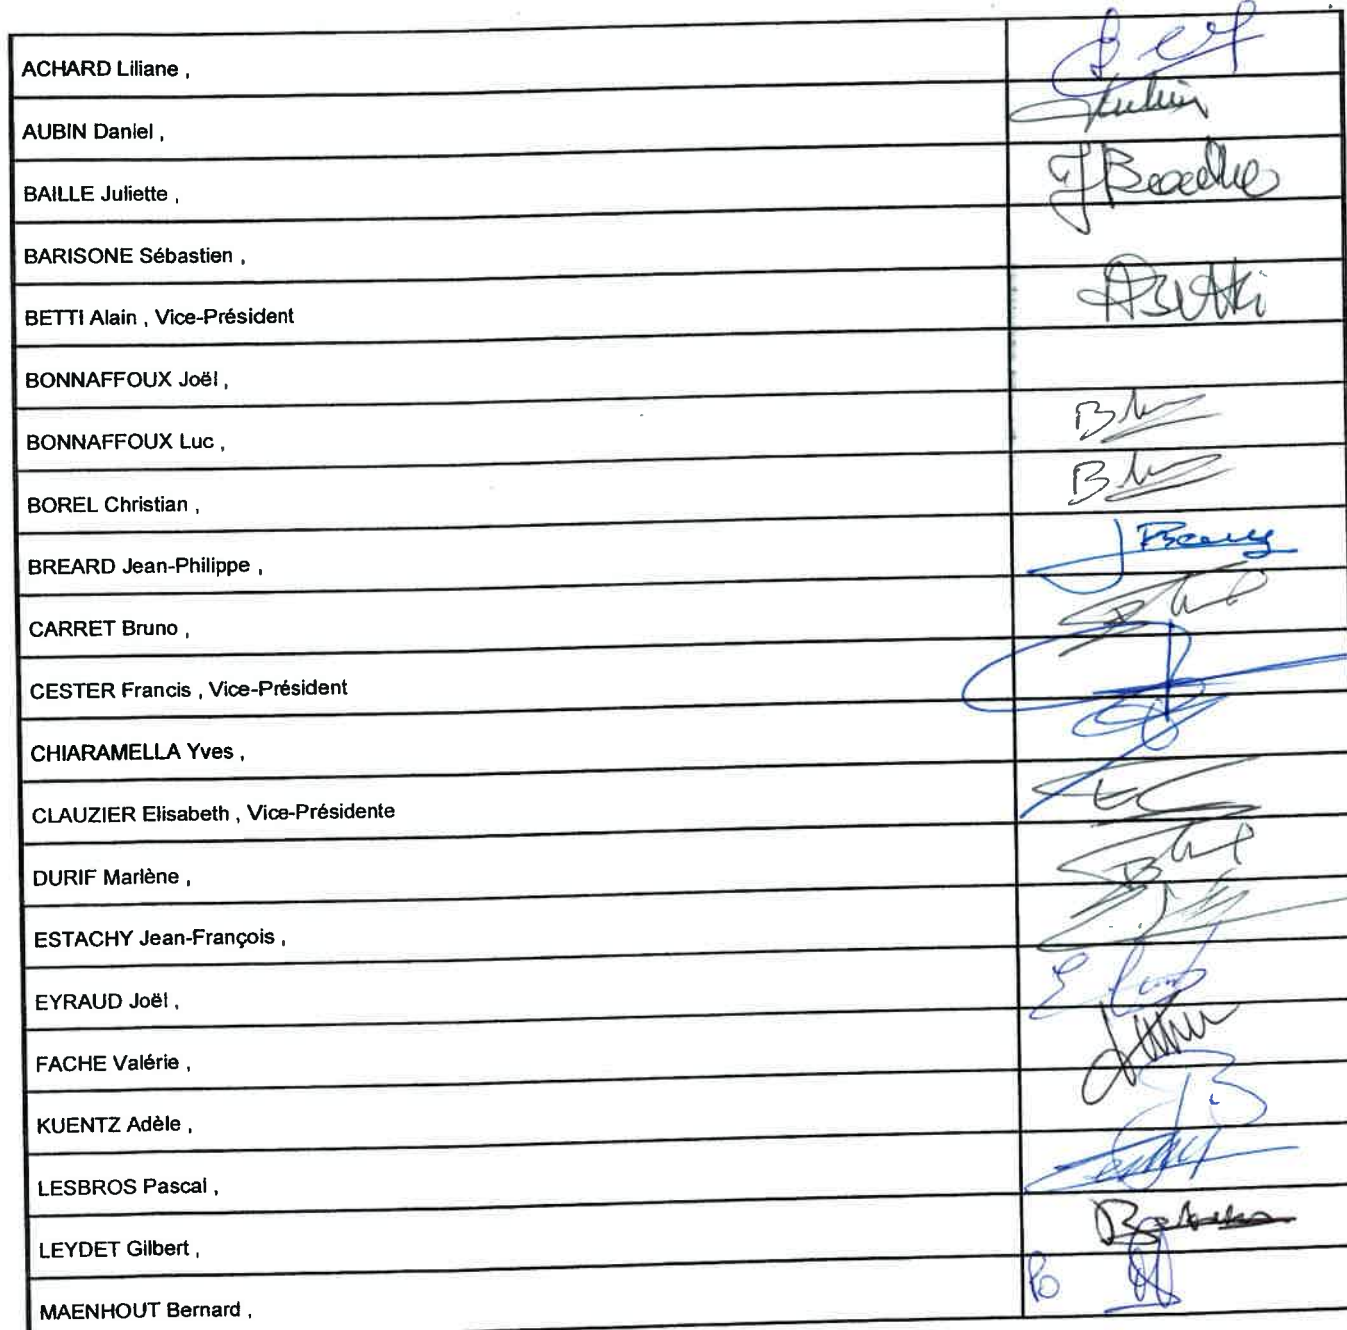 ACHARD Liliane ,
AUBIN Daniel ,
Aubin
BAILLE Juliette ,
BARISONE Sébastien ,
BETTI Alain , Vice-Président
ABetti
BONNAFFOUX Joël ,
BONNAFFOUX Luc ,
BOREL Christian ,
BREARD Jean-Philippe ,
CARRET Bruno ,
CESTER Francis , Vice-Président
CHIARAMELLA Yves ,
CLAUZIER Elisabeth , Vice-Présidente
DURIF Marlène ,
ESTACHY Jean-François ,
EYRAUD Joël ,
FACHE Valérie ,
KUENTZ Adèle ,
LESBROS Pascal ,
LEYDET Gilbert ,
MAENHOUT Bernard ,
Po